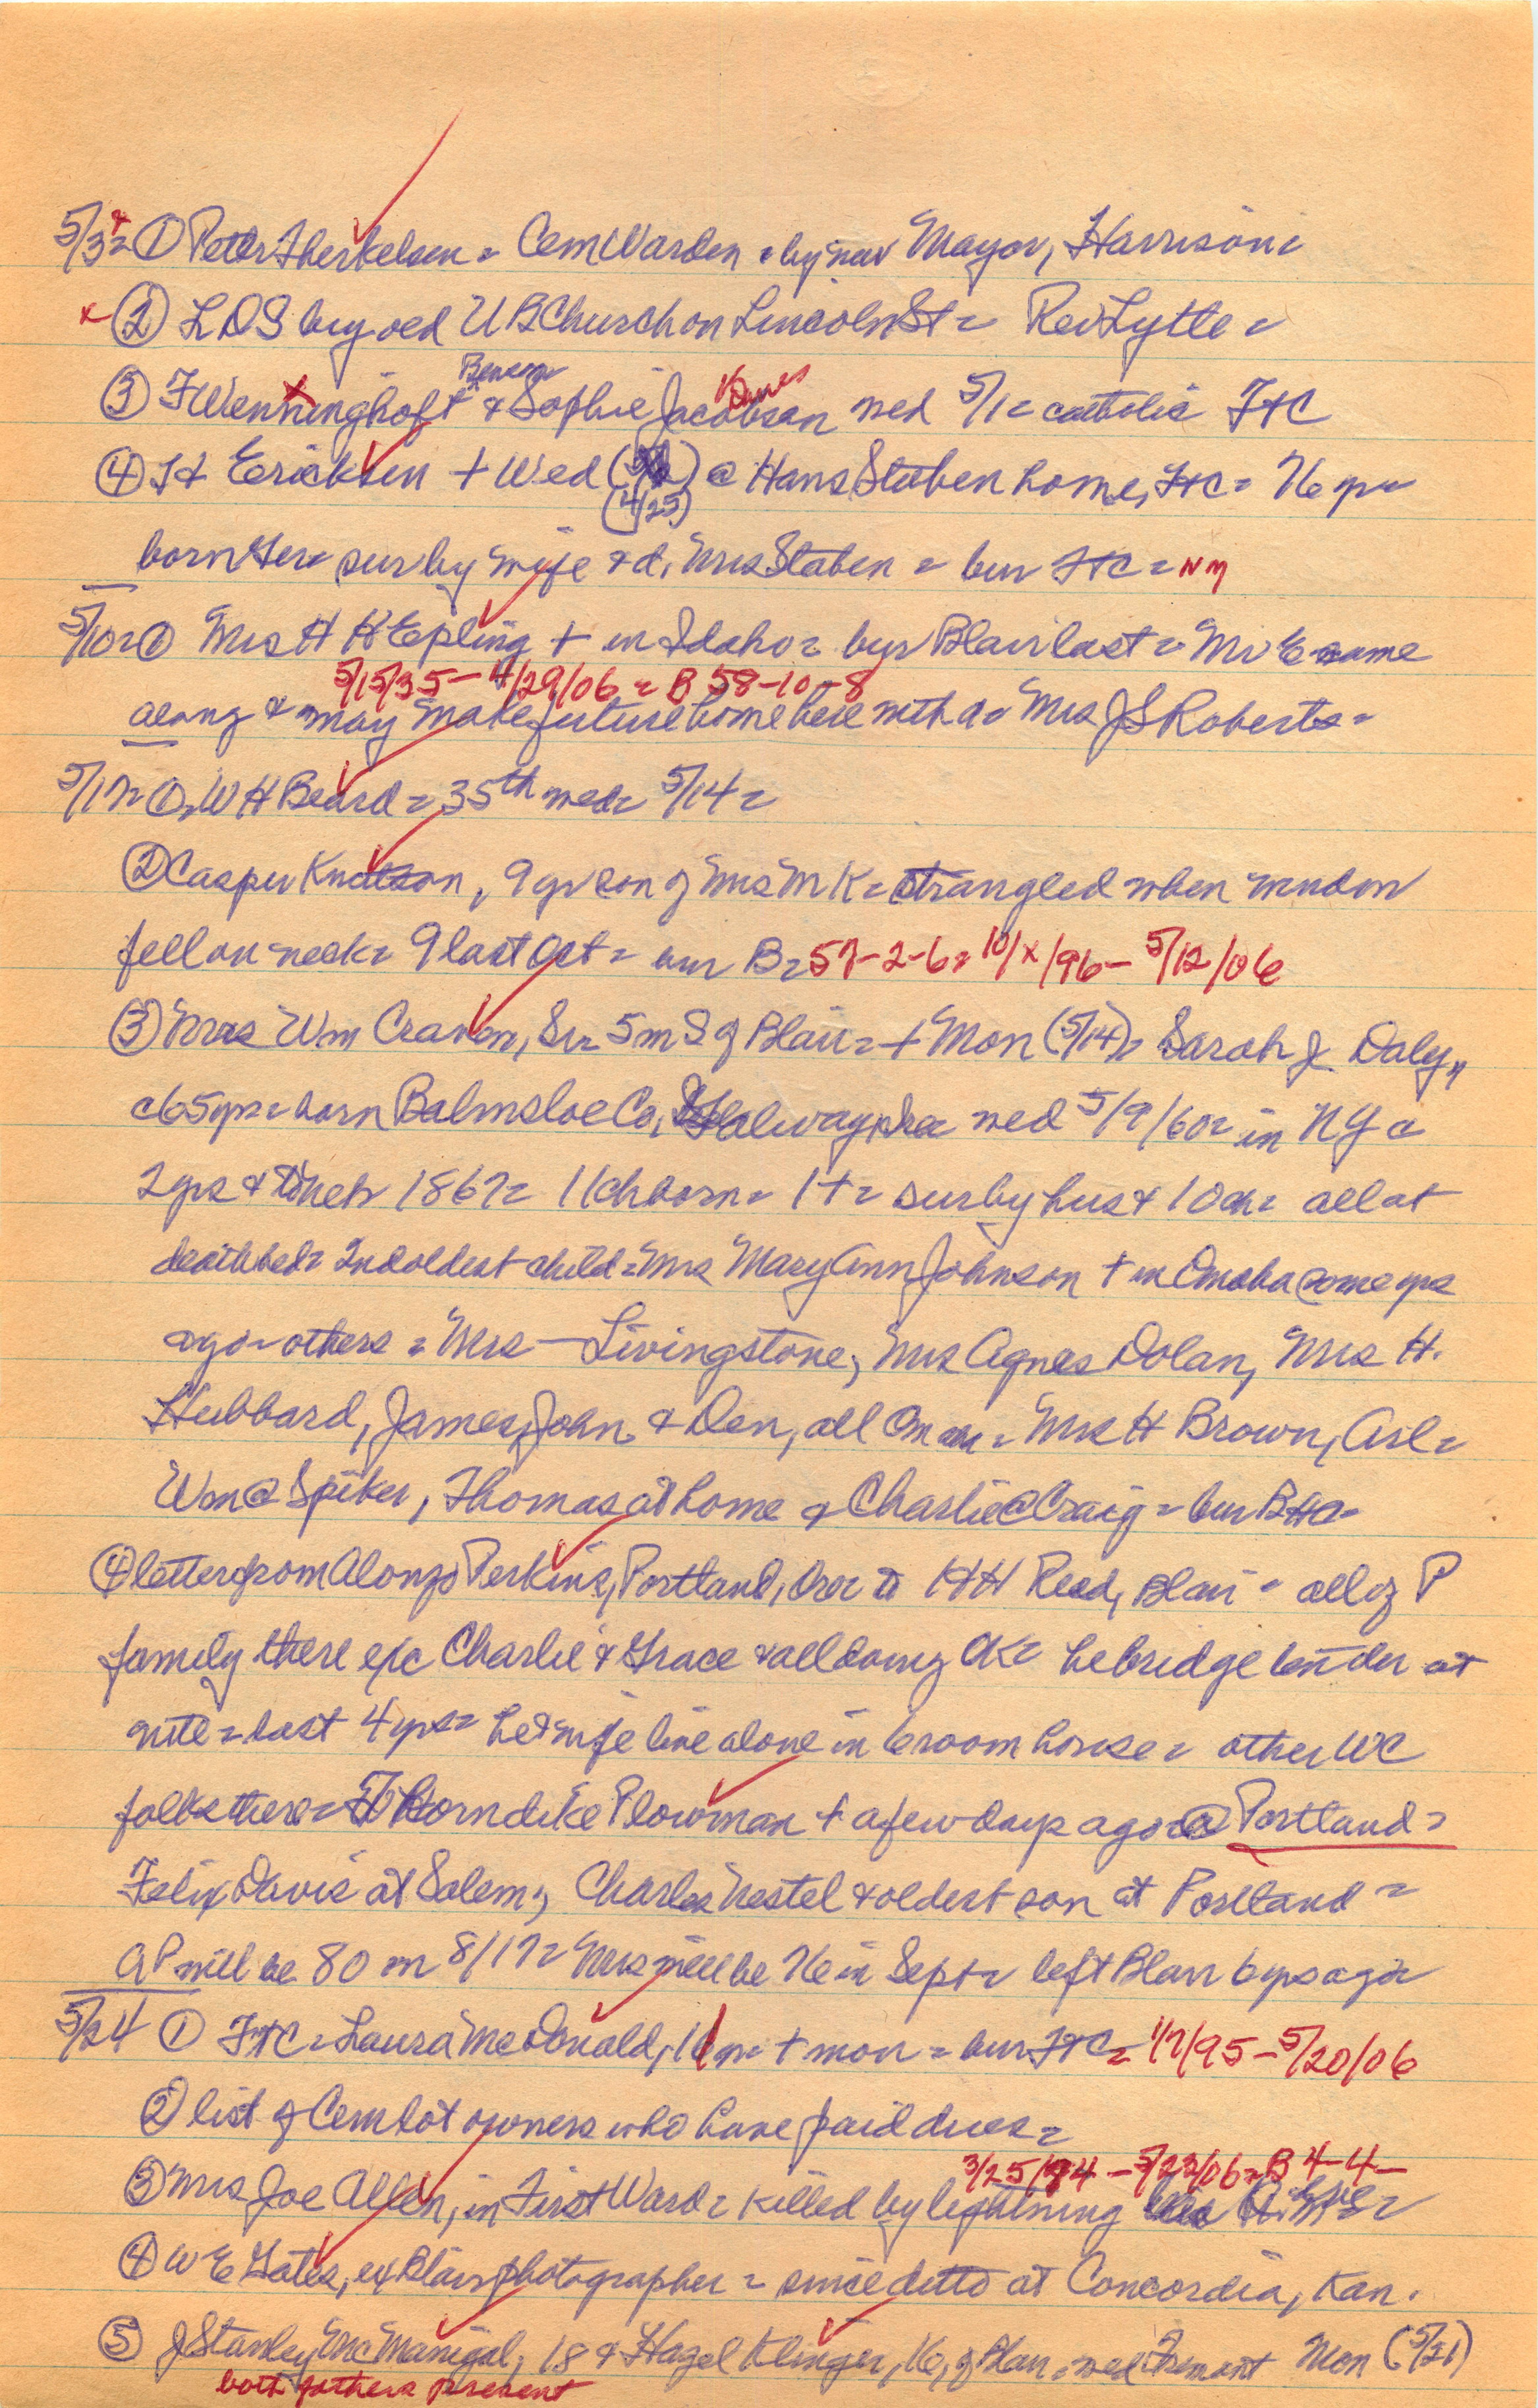 5/3= ① Peter Therkelsen = Cem Warden = by new Mayor, Harrison=
x ② LDS buy old UB Church on Lincoln St = Rev Lytle =
Benson Dunes
③ F Wenninghoff & Sophie Jacobson wed 5/1= catholic FtC
④ H Ericksen + Wed ( ) @ Hans Staben home, FtC = 76 yr=
(4/25)
born Ger= sur by wife & d, Mrs Staben = bur FtC = NM
5/10= ① Mrs H H Epling + in Idaho= bur Blair last = Mr E came
5/15/35 - 4/29/06 = B 58-10-8
along & may make future home here with d= Mrs JS Roberts=
5/17= ① WH Beard = 35th wed= 5/14=
② Casper Knutson, 9 yr son of Mrs M K= strangled when window
fell on neck= 9 last Oct = bur B= 57-2-6= 10/x/96 - 5/12/06
③ Mrs Wm Craven, Sr= 5 m S of Blair= + Mon (5/14)= Sarah J Daly,,
c65yrs= born Balmsloe Co, Galway, Ire= wed 5/9/60= in NY c
2 yrs & to Neb 1867= 11 ch born= 1+= sur by hus & 10 ch= all at
deathbed= 2nd oldest child = Mrs Mary Ann Johnson + in Omaha some yrs
ago= others = Mrs — Livingstone, Mrs Agnes Dolan, Mrs H.
Hubbard, James, John & Den, all Omah = Mrs H Brown, Arl=
Wm @ Spiker, Thomas at home & Charlie @ Craig = bur B
④ letter from Alonzo Perkins, Portland, Ore= to HH Reed, Blair = all of P
family there exc Charlie & Grace & all doing OK= he bridge tender at
nite = last 4 yrs= he & wife live alone in 6 room house = other WC
folks there = Thorndike Plowman + a few days ago= @ Portland=
Felix Davis at Salem,, Charles Nestel & oldest son at Portland =
AP will be 80 on 8/17= Mrs will be 76 in Sept= left Blair 6 yrs ago=
5/24 ① FtC= Laura McDonald, 11 yr= + mon = bur FtC= 1/7/95 - 5/20/06
② list of Cem lot owners who have paid dues=
3/25/84 - 5/23/06= B 4-4-
③ Mrs Joe Allen, in First Ward= killed by lightning
④ WE Gates, ex Blair photographer = since ditto at Concordia, Kan.
⑤ J Stanley McManigal, 18 & Hazel Klinger, 16, of Blair = wed Fremont Mon (5/21)
both fathers present